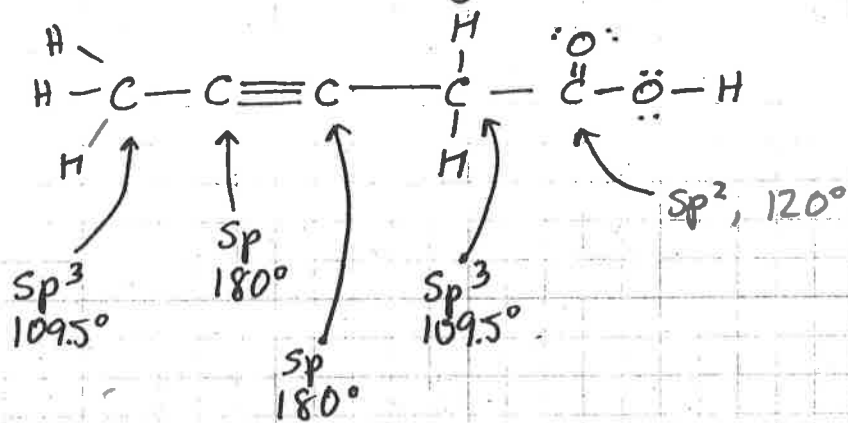 H H :O:
H – C – C ≡ C – C – C – Ö – H
H H
Sp³
109.5°
Sp
180°
Sp
180°
Sp³
109.5°
Sp², 120°